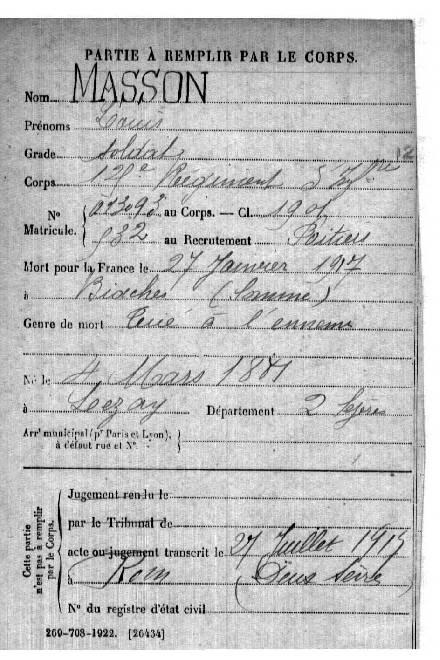 PARTIE À REMPLIR PAR LE CORPS.
Nom MASSON
Prénoms Louis
Grade soldat
Corps Régiment d'
12
Nº Matricule. au Corps. — Cl. 190
932 au Recrutement Poitiers
Mort pour la France le 27 Janvier 1917
à Biaches (Somme)
Genre de mort Tué à l'ennemi
Né le 4 Mars 1881
à Lezay Département 2 Sèvres
Arrᵗ municipal (pʳ Paris et Lyon),
à défaut rue et Nº.
Cette partie n'est pas à remplir par le Corps.
Jugement rendu le
par le Tribunal de
acte ou jugement transcrit le 27 Juillet 1917
à Rom (Deux Sèvre)
Nº du registre d'état civil
269-708-1922. [26434]